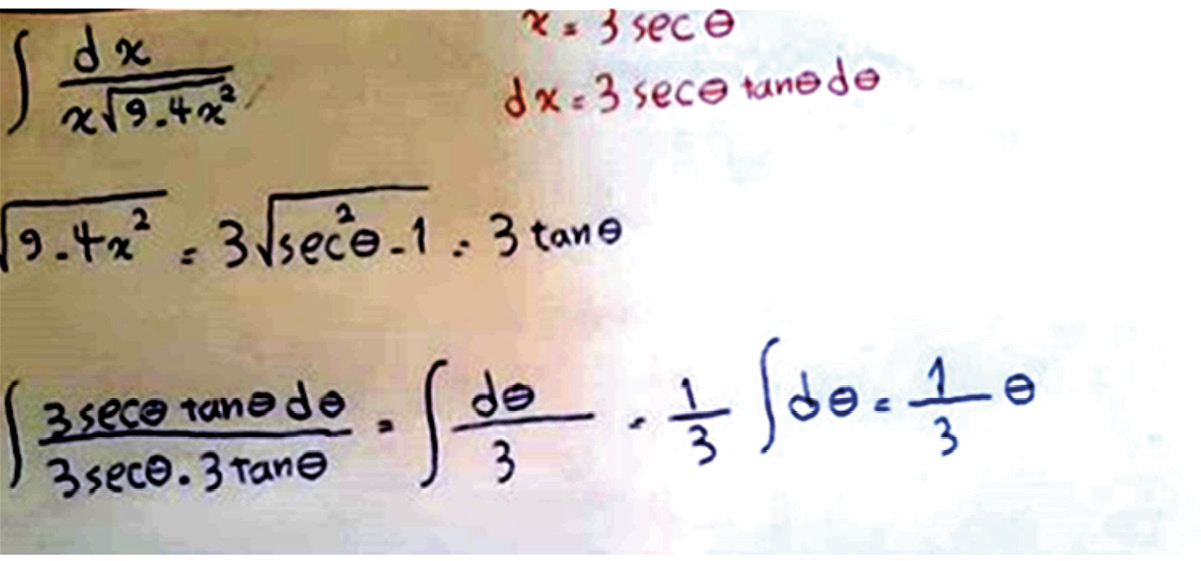 ∫ dx / x√9-4x²
x = 3 sec θ
dx = 3 secθ tanθ dθ
√9-4x² = 3√sec²θ-1 = 3 tanθ
∫ 3 secθ tanθ dθ / 3 secθ . 3 tanθ = ∫ dθ / 3 = 1/3 ∫ dθ = 1/3 θ